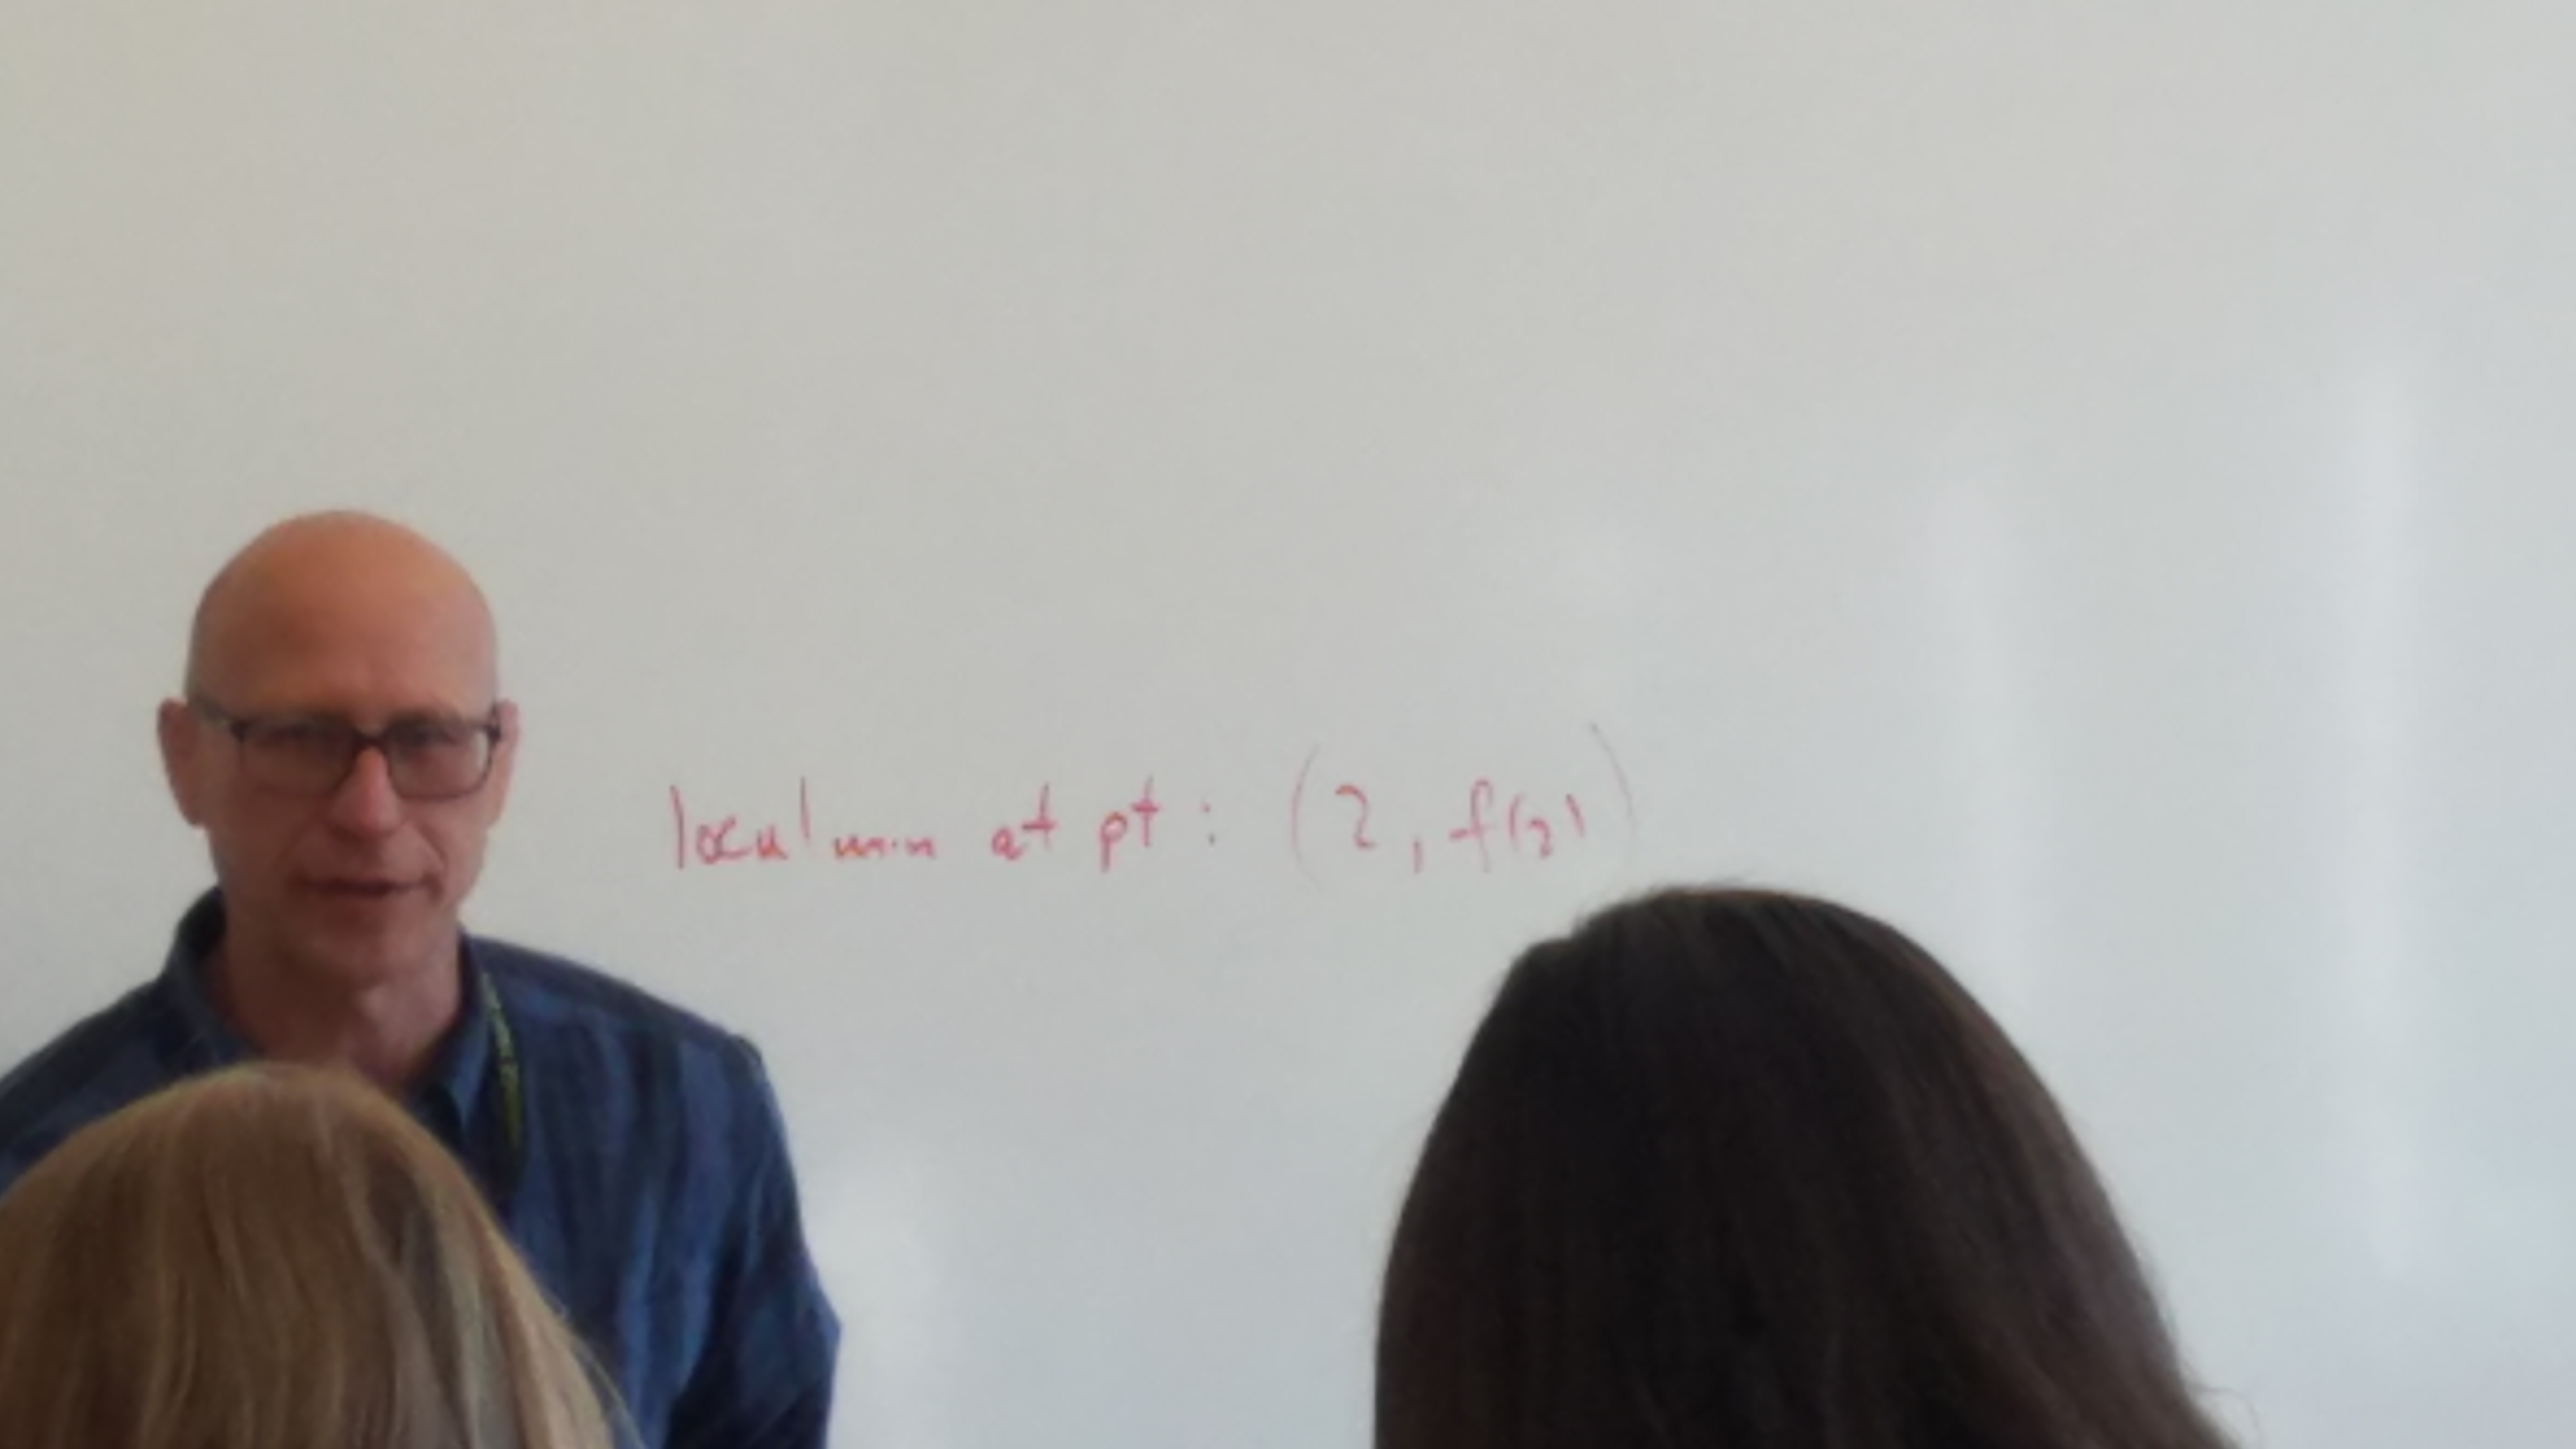 local min at pt : (2, f(2))